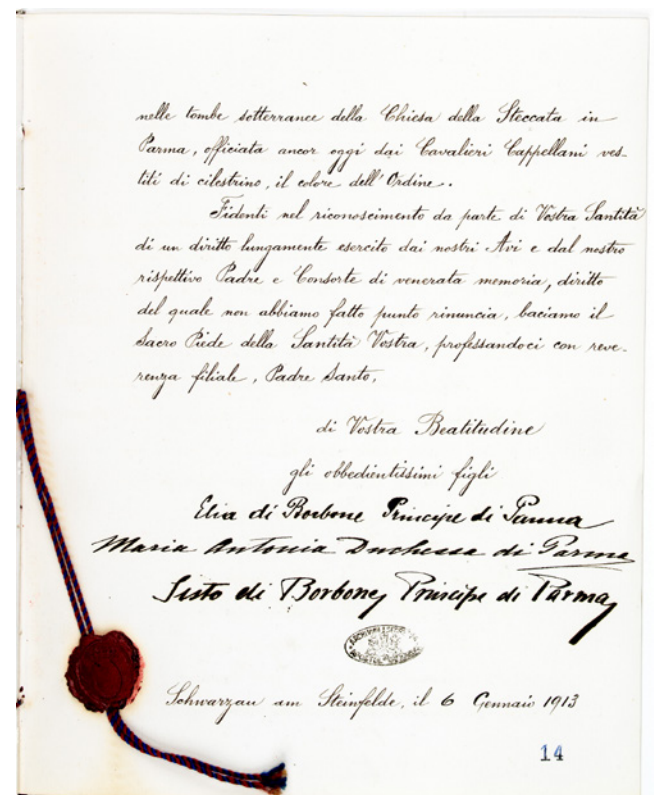 nelle tombe sotterranee della Chiesa della Steccata in
Parma, officiata ancor oggi dai Cavalieri Cappellani ves-
titi di cilestrino, il colore dell'Ordine.
Fidenti nel riconoscimento da parte di Vostra Santità
di un diritto lungamente esercito dai nostri Avi e dal nostro
rispettivo Padre e Consorte di venerata memoria, diritto
del quale non abbiamo fatto punto rinuncia, baciamo il
Sacro Piede della Santità Vostra, professandoci con reve-
renza filiale, Padre Santo,
di Vostra Beatitudine
gli obbedientissimi figli
Elia di Borbone Principe di Parma
Maria Antonia Duchessa di Parma
Sisto di Borbone, Principe di Parma,
Schwarzau am Steinfelde, il 6 Gennaio 1913
14